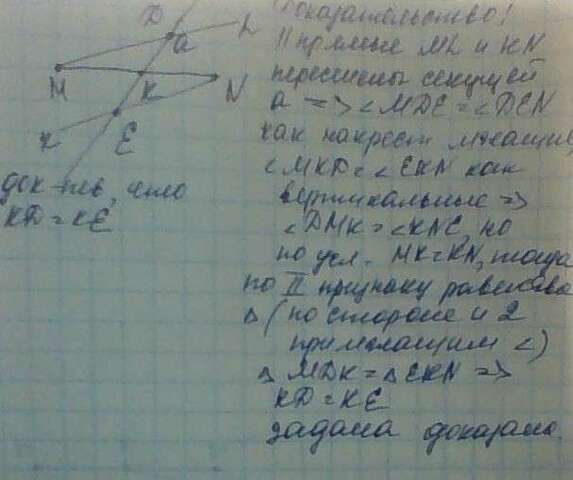 Доказательство!
D
L
a
M
K
N
x
E
док-ть, что
KD=KE
|| прямые ML и KN
пересечены секущей
a => <MDE=<DEN
как накрест лежащие,
<MKD=<EKN как
вертикальные =>
<DMK=<KNE, но
по усл. MK=KN, тогда
по II признаку равенства
Δ (по стороне и 2
прилежащим <)
Δ MDK=Δ EKN =>
KD=KE
задача доказана.